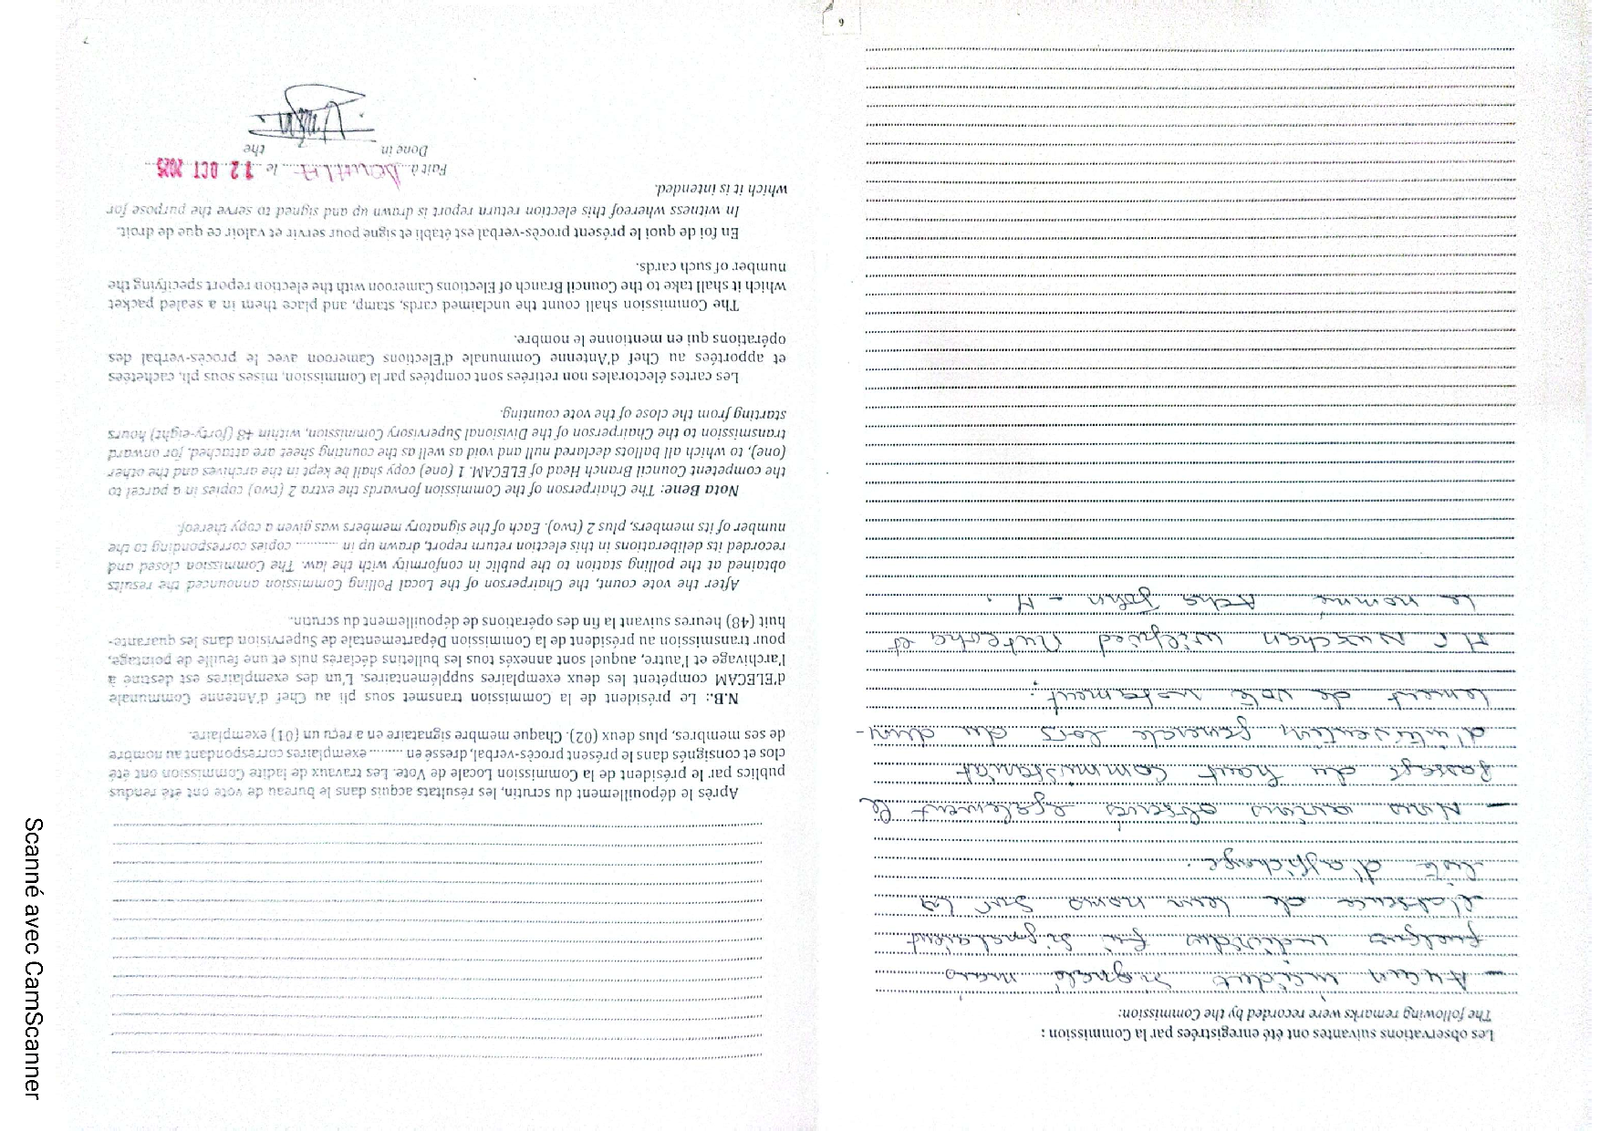 Les observations suivantes ont été enregistrées par la Commission :
The following remarks were recorded by the Commission:
- Aucun incident signalé mais
quelques individus qui signalaient
l'absence de leur noms sur la
liste d'affichage.
- Nous avons observés également le
passage du haut commissariat
d'intervention generale lors du
lement de vote notament :
Mr wilfried et
Le nommé John - M.
6
Après le dépouillement du scrutin, les résultats acquis dans le bureau de vote ont été rendus
publics par le président de la Commission Locale de Vote. Les travaux de ladite Commission ont été
clos et consignés dans le présent procès-verbal, dressé en .......... exemplaires correspondant au nombre
de ses membres, plus deux (02). Chaque membre signataire en a reçu un (01) exemplaire.
N.B.: Le président de la Commission transmet sous pli au Chef d'Antenne Communale
d'ELECAM compétent les deux exemplaires supplémentaires. L'un des exemplaires est destiné à
l'archivage et l'autre, auquel sont annexés tous les bulletins déclarés nuls et une feuille de pointage,
pour transmission au président de la Commission Départementale de Supervision dans les quarante-
huit (48) heures suivant la fin des opérations de dépouillement du scrutin.
After the vote count, the Chairperson of the Local Polling Commission announced the results
obtained at the polling station to the public in conformity with the law. The Commission closed and
recorded its deliberations in this election return report, drawn up in ........... copies corresponding to the
number of its members, plus 2 (two). Each of the signatory members was given a copy thereof.
Nota Bene: The Chairperson of the Commission forwards the extra 2 (two) copies in a parcel to
the competent Council Branch Head of ELECAM. 1 (one) copy shall be kept in the archives and the other
(one), to which all ballots declared null and void as well as the counting sheet are attached, for onward
transmission to the Chairperson of the Divisional Supervisory Commission, within 48 (forty-eight) hours
starting from the close of the vote counting.
Les cartes électorales non retirées sont comptées par la Commission, mises sous pli, cachetées
et apportées au Chef d'Antenne Communale d'Elections Cameroon avec le procès-verbal des
opérations qui en mentionne le nombre.
The Commission shall count the unclaimed cards, stamp, and place them in a sealed packet
which it shall take to the Council Branch of Elections Cameroon with the election report specifying the
number of such cards.
En foi de quoi le présent procès-verbal est établi et signé pour servir et valoir ce que de droit.
In witness whereof this election return report is drawn up and signed to serve the purpose for
which it is intended.
Fait à DOUALA le 12 OCT 2025
Done in the
7
Scanné avec CamScanner